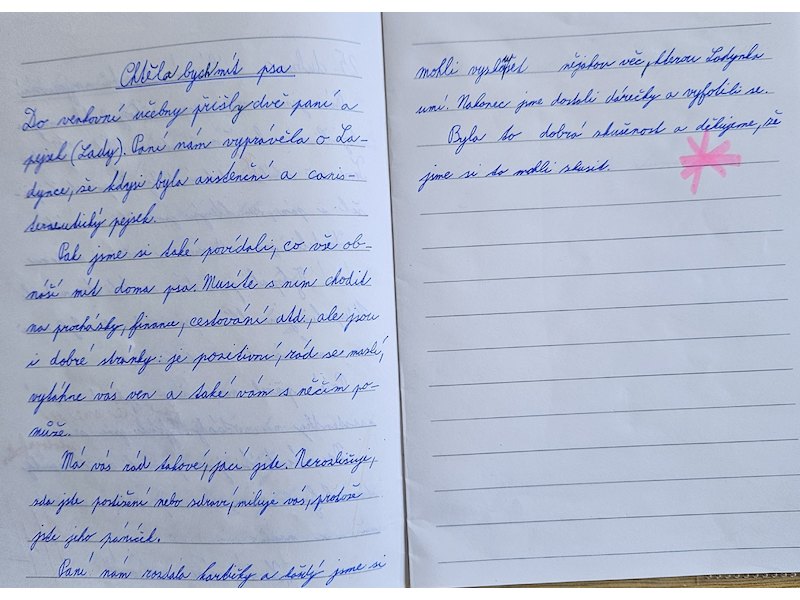 Chtěla bych mít psa
Do venkovní učebny přišly dvě paní a
pejsek (Lady). Paní nám vyprávěla o La-
dynce, že kdysi byla asistenční a canis-
terapeutický pejsek.
Pak jsme si také povídali, co vše ob-
náší mít doma psa. Musíte s ním chodit
na procházky, finance, cestování atd., ale jsou
i dobré stránky: je pozitivní, rád se mazlí,
vytáhne vás ven a také vám s něčím po-
může.
Má vás rád takové, jací jste. Nerozlišuje,
zda jste postižení nebo zdraví, miluje vás, protože
jste jeho páníček.
Paní nám rozdala kartičky a každý jsme si
mohli vyslat nějakou věc, kterou Ladynka
umí. Nakonec jsme dostali dárečky a vyfotili se.
Byla to dobrá zkušenost a děkujeme, že
jsme si to mohli zkusit.